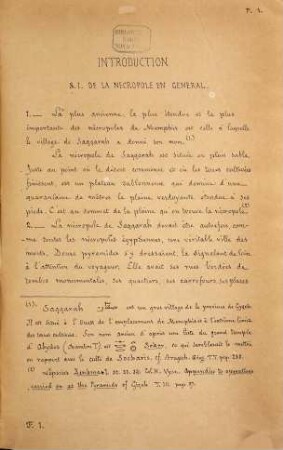 F. 1.
INTRODUCTION
§. I. DE LA NÉCROPOLE EN GÉNÉRAL.
1. — La plus ancienne, la plus étendue et la plus
importante des nécropoles de Memphis est celle à laquelle
le village de Saqqarah a donné son nom (1)
La nécropole de Saqqarah est située en plein sable.
Juste au point où le désert commence et où les terres cultivées
finissent, est un plateau sablonneux qui domine d'une
quarantaine de mètres la plaine verdoyante étendue à ses
pieds. C'est au sommet de la plaine qu'on trouve la nécropole. (2)
2. — La nécropole de Saqqarah devait être autrefois com-
me toutes les nécropoles égyptiennes, une véritable ville des
morts. Douze pyramides s'y dressaient, la signalant de loin
à l'attention du voyageur. Elle avait ses rues bordées de
tombes monumentales, ses quartiers, ses carrefours, ses places
(1). Saqqarah est un gros village de la province de Gyzeh.
Il est situé à l'Ouest de l'emplacement de Memphis et à l'extrême limite
des terres cultivées. Son nom ancien d'après une liste du grand temple
d'Abydos est Sokar, ce qui semblerait le mettre
en rapport avec le culte de Socharis. cf. Brugsch. pag.
(2) Lepsius Denkmæler. Col. H. Vyse. Appendix to operations
carried on at the Pyramids of Gyzeh T. III. pag.
F. 1.